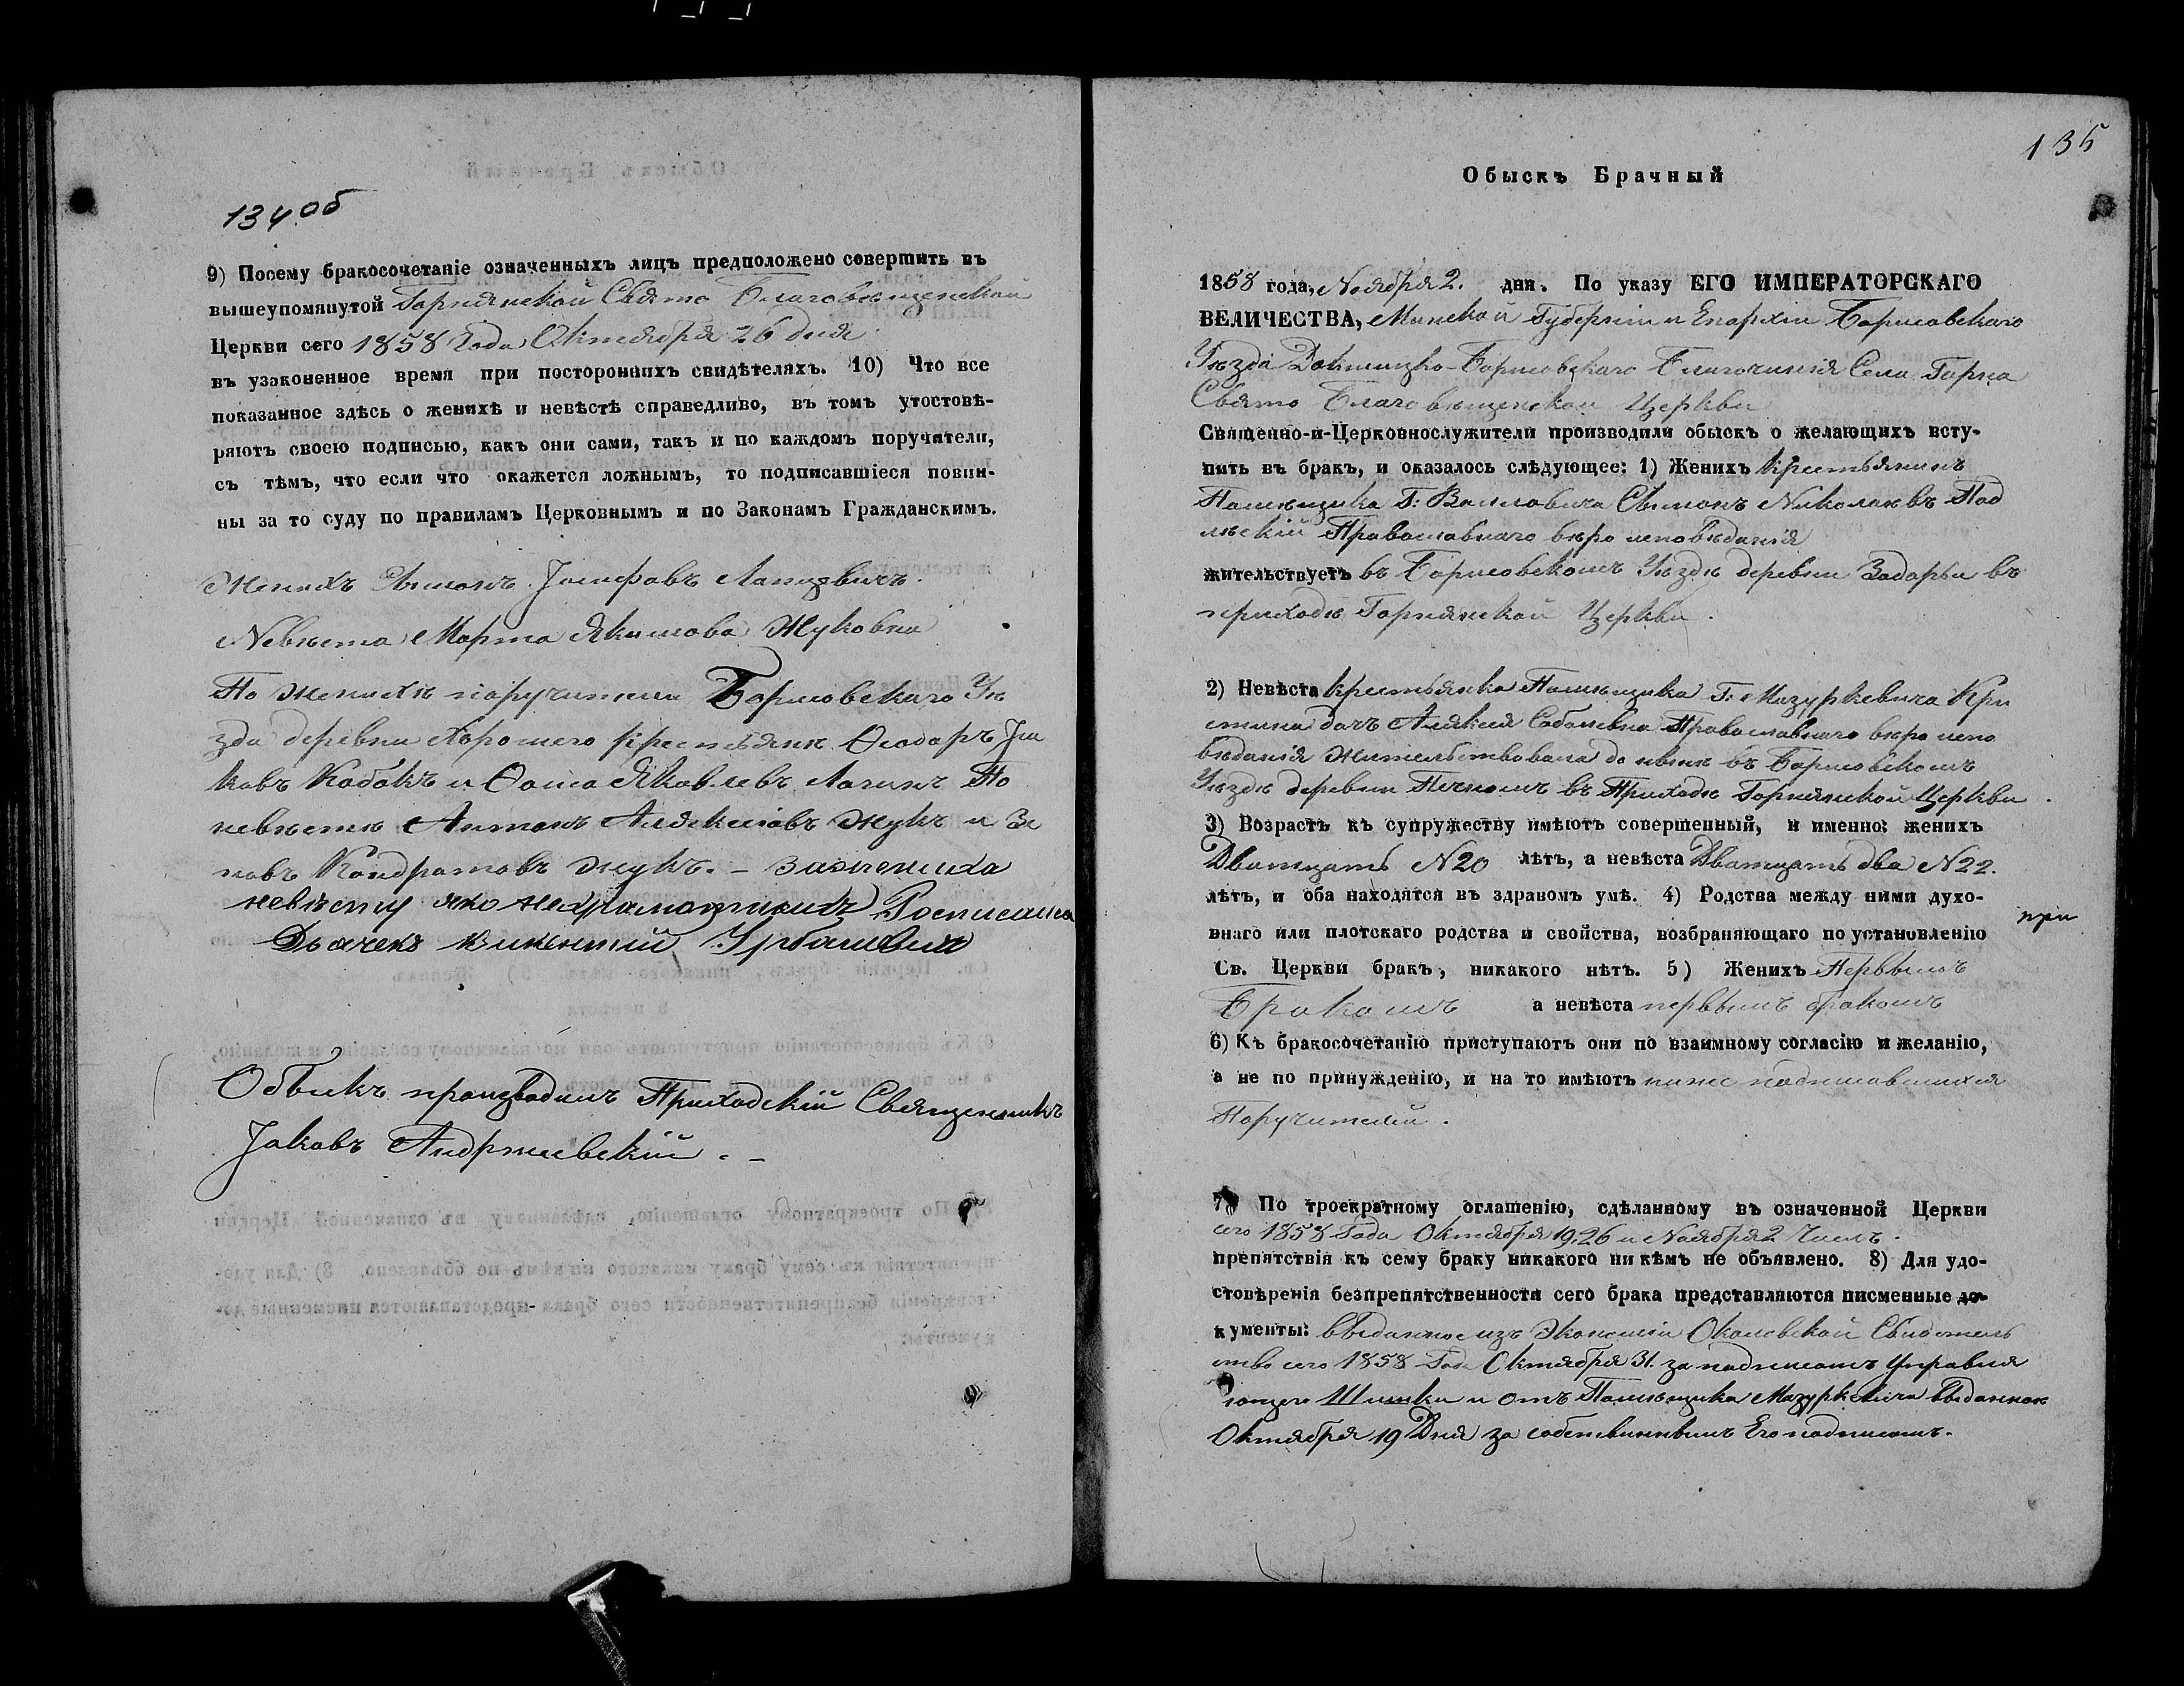 134 об
9) Посему бракосочетаніе означенныхъ лицъ предположено совершить въ
вышеупомянутой Горнянской Свято Благовѣщенской
Церкви сего 1858 Года Октября 26 дня
въ узаконенное время при постороннихъ свидѣтеляхъ. 10) Что все
показанное здѣсь о женихѣ и невѣстѣ справедливо, въ томъ утостовѣ-
ряютъ своею подписью, какъ они сами, такъ и по каждомъ поручители,
съ тѣмъ, что если что окажется ложнымъ, то подписавшіеся повин-
ны за то суду по правиламъ Церковнымъ и по Законамъ Гражданскимъ.
Женихъ Сымонъ Іосифовъ
Невѣста Марта Якимова Жуковна
По женихѣ поручители Борисовскаго Уѣ
зда деревни крестьяне Ѳеодоръ
ковъ и Ѳома Яковлевъ По
невѣстѣ Антонъ Алексіевъ Жукъ и
Кондратовъ Жукъ. – За жениха
невѣсту яко неграмотныхъ Росписался
Дьячекъ Викентій Урбановичъ
Обыскъ производилъ Приходскій Священникъ
Іаковъ Андржеевскій. –
135
Обыскъ Брачный
1858 года, Ноября 2. дня. По указу ЕГО ИМПЕРАТОРСКАГО
ВЕЛИЧЕСТВА, Минской Губерніи и Епархіи Борисовскаго
Уѣзда Докшицко-Борисовскаго Благочинія Села Горна
Свято Благовѣщенской Церкви
Священно-и-Церковнослужители производили обыскъ о желающихъ всту-
пить въ бракъ, и оказалось слѣдующее: 1) Женихъ Крестьянинъ
Помѣщика Г: Сымонъ Николаевъ Под
лѣскій Православнаго вѣро исповѣданія
жительствуетъ въ Борисовскомъ Уѣздѣ деревни Задарьи въ
приходѣ Горнянской Церкви.
2) Невѣста крестьянка Помѣщика Г: Мазуркевича Кри
стина дочь Алексія Правосавнаго вѣро испо
вѣданія жительствовала до нынѣ въ Борисовскомъ
Уѣздѣ деревни въ Приходѣ Горнянской Церкви.
3) Возрастъ къ супружеству имѣютъ совершенный, и именно: женихъ
Дватцать N 20 лѣтъ, а невѣста Дватцать два N 22.
лѣтъ, и оба находятся въ здравомъ умѣ. 4) Родства между ними духо-
внаго или плотскаго родства и свойства, возбраняющаго по установленію
при
Св. Церкви бракъ, никакого нѣтъ. 5) Женихъ Первымъ
Бракомъ а невѣста первымъ бракомъ
6) Къ бракосочетанію приступаютъ они по взаимному согласію и желанію,
а не по принужденію, и на то имѣютъ ниже подписавшихся
Поручителей.
7) По троекратному оглашенію, сдѣланному въ означенной Церкви
сего 1858 Года Октября 19, 26 и Ноября 2 Числъ.
препятствія къ сему браку никакого ни кѣмъ не объявлено. 8) Для удо-
стовѣренія безпрепятственности сего брака представляются писменные до-
кументы: выданное изъ Экономіи Околовской Свидѣтель
ство сего 1858 Года Октября 31. за подписомъ Управля
ющего и отъ Помѣщика Мазуркевича выданное
Октября 19 Дня за собственнымъ Его подписомъ.